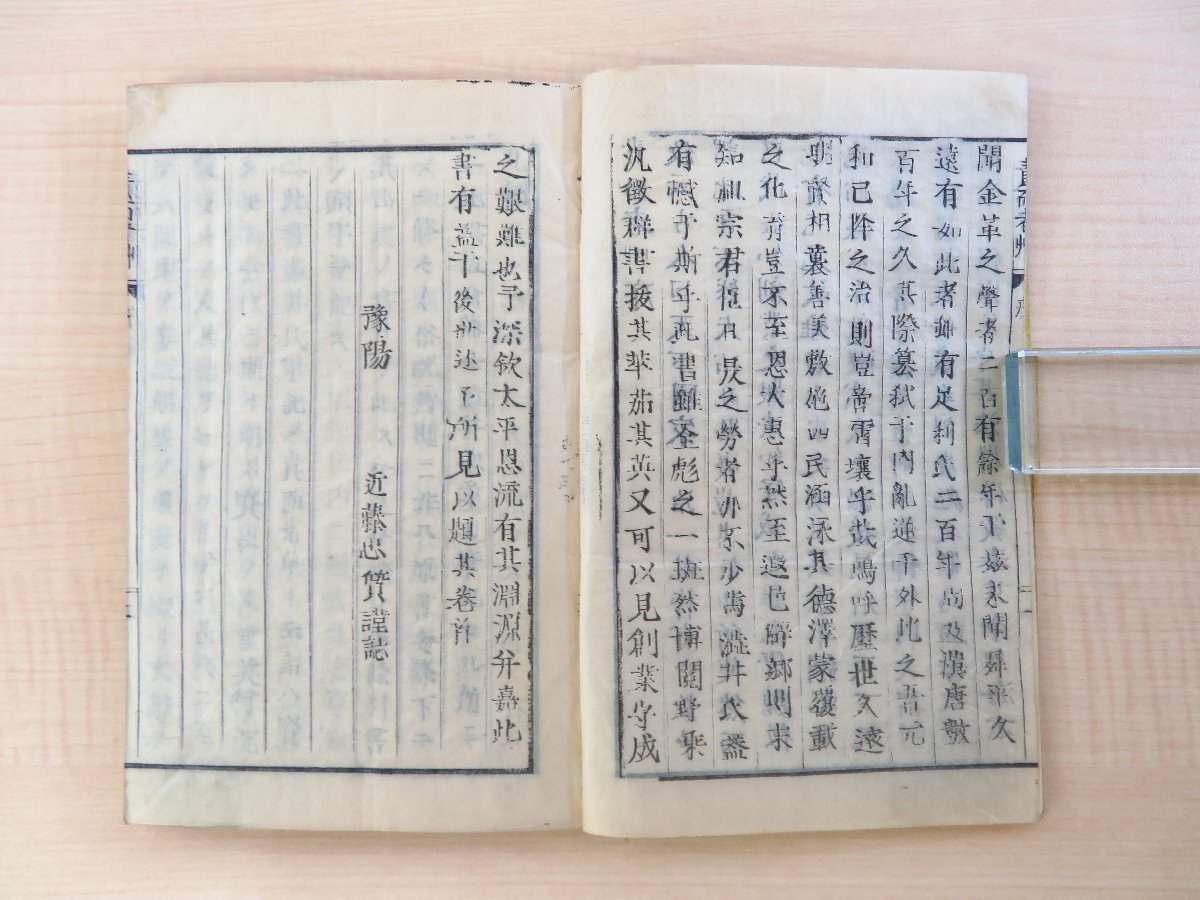 聞金革之聲者二百有餘年下
遠有如此者雖有足利氏二百年前及漢唐數
百年之久其際篡弑于內亂逆于外比之吾元
和已降之治則豈啻霄壤乎哉嗚呼歷世文遠
明賢相襄善美敷施四民涵泳其德澤蒙覆載
之化育豈不至恩大惠乎然至遐邑僻鄉則未
知祖宗君臣之勞者亦不少焉澁井氏蓋
有憾于斯乎此書雖全彪之一斑然博閱野乘
汎徵群書拔其萃茹其英又可以見創業守成
之艱難也予深欽太平恩流有其淵源并嘉此
書有益于後世述予所見以題其卷首
豫陽 近藤忠質謹誌
序